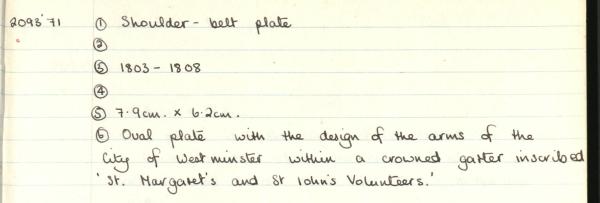 2093'71 ① Shoulder-belt plate
②
③ 1803-1808
④
⑤ 7.9cm. x 6.2cm.
⑥ Oval plate with the design of the arms of the
City of Westminster within a crowned garter inscribed
'St. Margaret's and St John's Volunteers.'